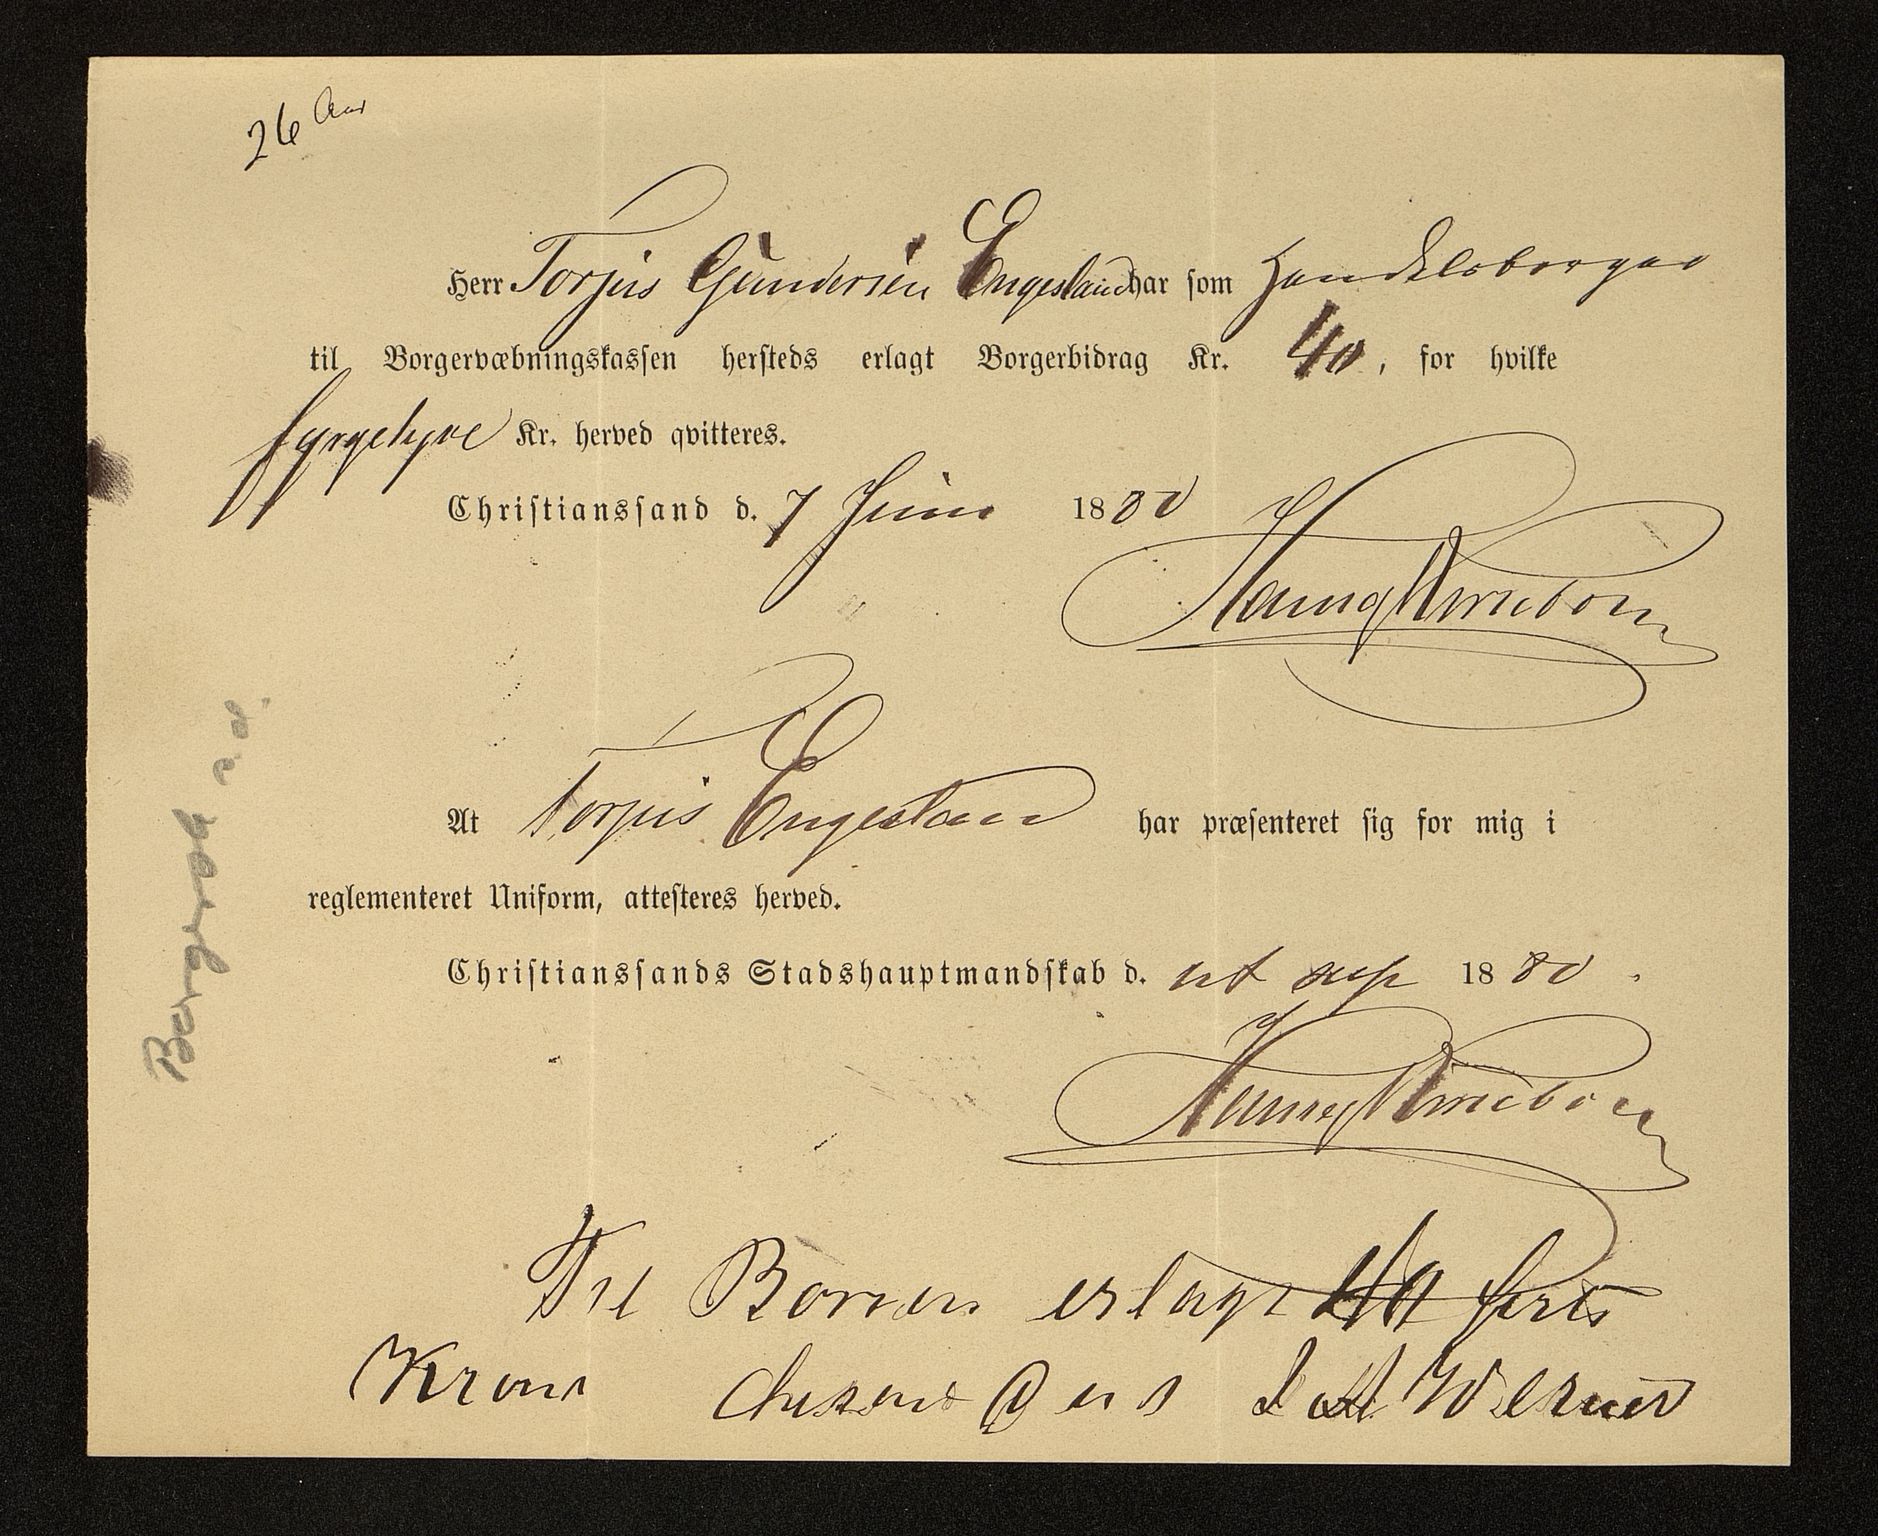 26 Aar
Herr Torjus Gundersen Engesland har som Handelsborger
til Borgervæbningskassen hersteds erlagt Borgerbidrag Kr. 40, for hvilke
fyrgetyve Kr. herved qvitteres.
Christianssand d. 7 Juni 1880
At Torjus Engesland har præsenteret sig for mig i
reglementeret Uniform, attesteres herved.
Christianssands Stadshauptmandskab d. ut sup 1880.
Til Børsen erlagt 40 forti
Kroner
Borgerrok